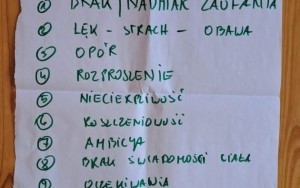 BRAK / NADMIAR ZAUFANIA
② LĘK - STRACH - OBAWA
③ OPÓR
④ ROZPROSZENIE
⑤ NIECIERPLIWOŚĆ
⑥ ROSZCZENIOWOŚĆ
⑦ AMBICJA
⑧ BRAK ŚWIADOMOŚCI CIAŁA
⑨ OCZEKIWANIA